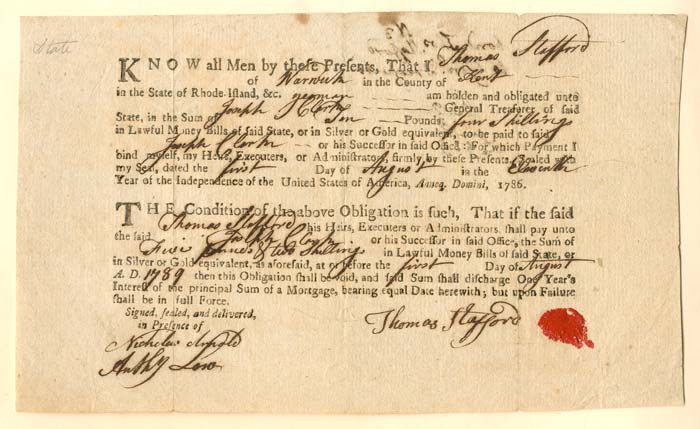 State
KNOW all Men by these Presents, That I Thomas Stafford
of Warwick in the County of Kent
in the State of Rhode-Island, &c. yeoman am holden and obligated unto
Joseph Clark General Treasurer of said
State, in the Sum of Ten Pounds, four Shillings
in Lawful Money Bills of said State, or in Silver or Gold equivalent, to be paid to said
Joseph Clark or his Successor in said Office: For which Payment I
bind myself, my Heirs, Executors, or Administrators, firmly by these Presents. Sealed with
my Seal, dated the first Day of August in the Eleventh
Year of the Independence of the United States of America, Annoq. Domini, 1786.
THE Condition of the above Obligation is such, That if the said
Thomas Stafford his Heirs, Executors or Administrators, shall pay unto
the said Joseph Clark or his Successor in said Office, the Sum of
Five pounds & two Shillings in Lawful Money Bills of said State, or
in Silver or Gold equivalent, as aforesaid, at or before the first Day of August
A. D. 1789 then this Obligation shall be void, and said Sum shall discharge One Year's
Interest of the principal Sum of a Mortgage, bearing equal Date herewith; but upon Failure
shall be in full Force.
Signed, sealed, and delivered,
in Presence of
Thomas Stafford
Nicholas Arnold
Anthy Low